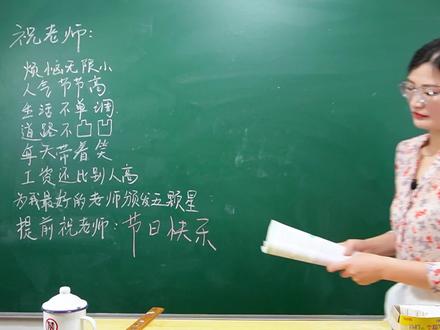 祝老师:
烦恼无限小
人气节节高
生活不单调
道路不凸凹
每天带着笑
工资还比别人高
为我最好的老师颁发五颗星
提前祝老师:节日快乐